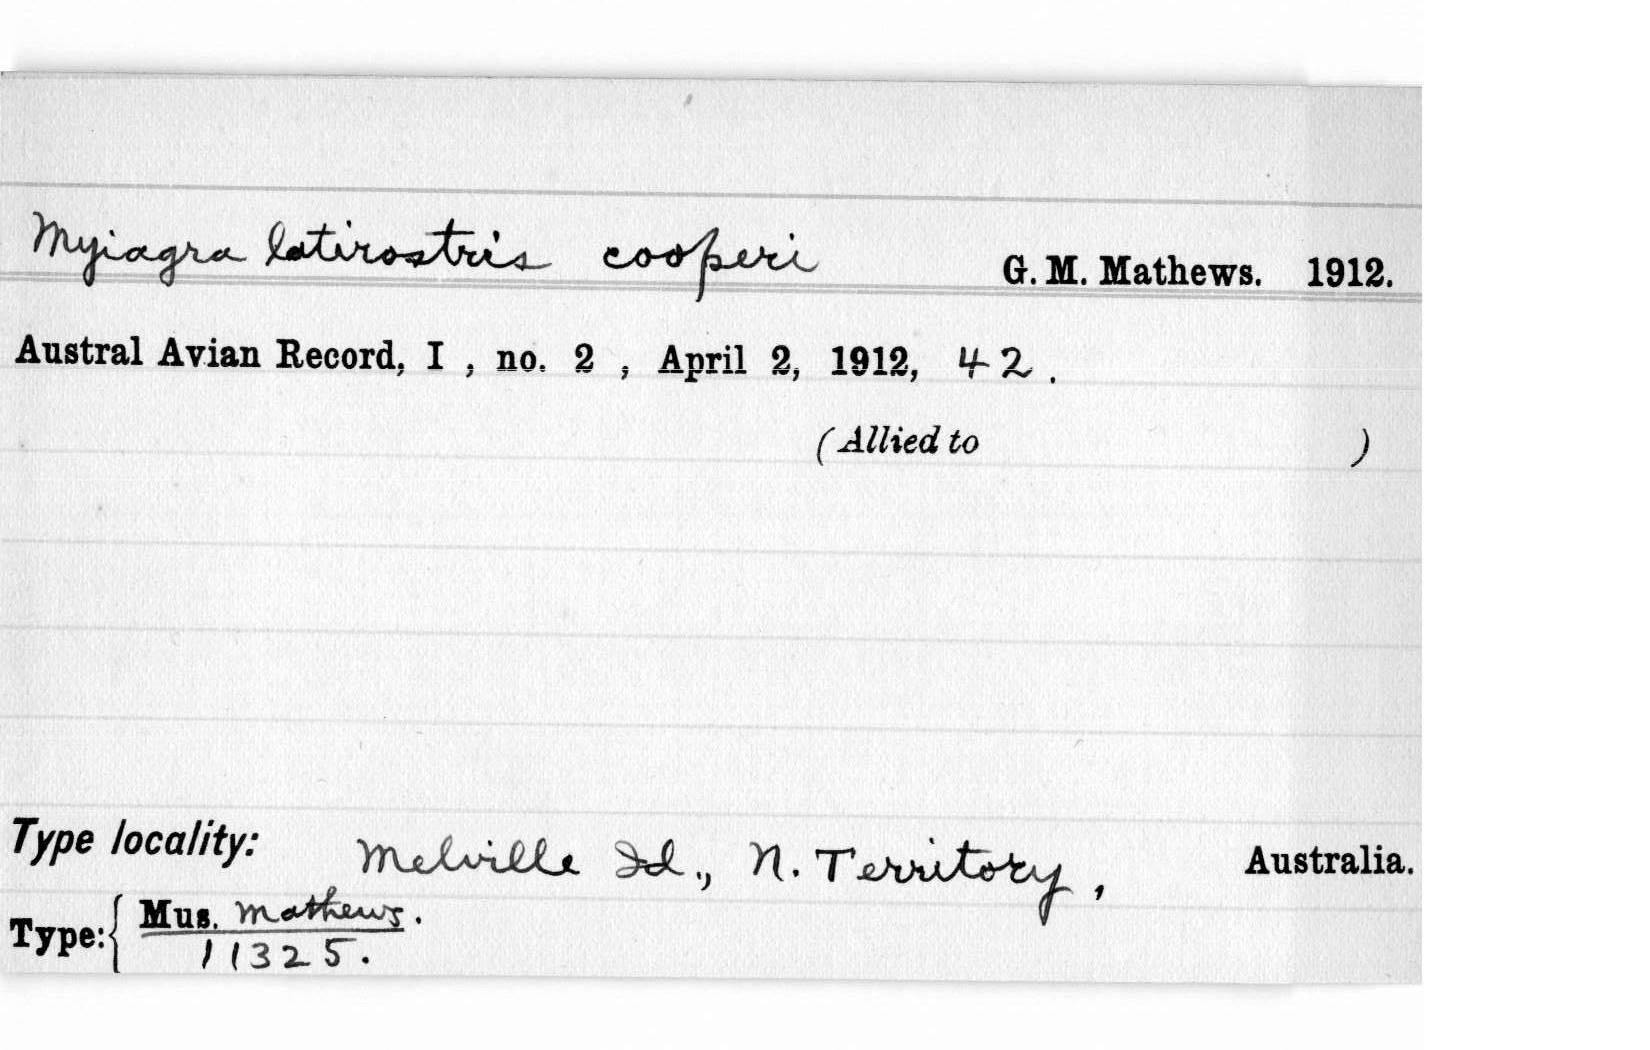 Myiagra latirostris cooperi G. M. Mathews. 1912.
Austral Avian Record, I , no. 2 , April 2, 1912, 42 .
(Allied to )
Type locality: Melville Id., N. Territory, Australia.
Type: { Mus. Mathews.
11325.